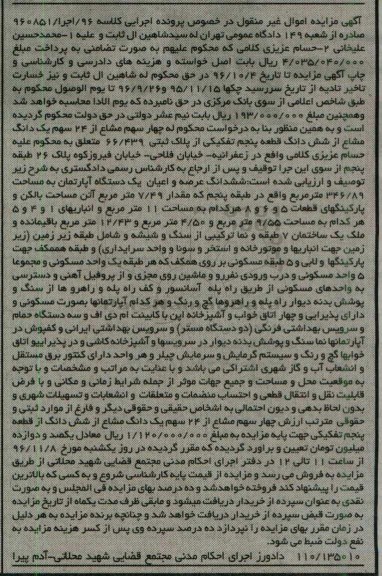 آگهی مزایده اموال غیر منقول در خصوص پرونده اجرایی کلاسه ۹۶/اجرا/۹۶۰۸۵۱
صادره از شعبه ۱۴۹ دادگاه عمومی تهران له سیدشاهین ال ثابت و علیه ۱-محمدحسین
علیخانی ۲-حسام عزیزی کلامی که محکوم علیهم به صورت تضامنی به پرداخت مبلغ
۴/۰۳۵/۰۴۰/۰۰۰ ریال بابت اصل خواسته و هزینه های دادرسی و کارشناسی و
چاپ آگهی مزایده تا تاریخ ۹۶/۱۰/۴ در حق محکوم له شاهین ال ثابت و نیز خسارت
تاخیر تادیه از تاریخ سررسید چکها ۹۵/۱۱/۱۵ و ۹۶/۹/۲۶ تا یوم الوصول محکوم به
طبق شاخص اعلامی از سوی بانک مرکزی در حق نامبرده که یوم الادا محاسبه خواهد شد
وهمچنین مبلغ ۱۹۳/۰۰۰/۰۰۰ ریال بابت نیم عشر دولتی در حق دولت محکوم گردیده
است و به همین منظور بنا به درخواست محکوم له چهار سهم مشاع از ۲۴ سهم یک دانگ
مشاع از شش دانگ قطعه پنجم تفکیکی از پلاک ثبتی ۶۶/۴۳۹ متعلق به محکوم علیه
حسام عزیزی کلامی واقع در زعفرانیه- خیابان فلاحی- خیابان فیروزکوه پلاک ۲۶ طبقه
پنجم از سوی این جرا توقیف و پس از ارجاع به کارشناس رسمی دادگستری به شرح زیر
توصیف و ارزیابی شده است:ششدانگ عرصه و اعیان یک دستگاه آپارتمان به مساحت
۳۴۶/۸۹ مترمربع واقع در طبقه پنجم که مقدار ۷/۴۹ متر مربع آن مساحت بالکن و
پارکینگهای قطعات ۵ و ۶ و ۸ هرکدام به مساحت ۱۱ متر مربع و انباریهای ۱ و ۴ و ۵
هر کدام به مساحت ۹/۵۵ متر مربع و ۴/۵۰ متر مربع و ۱۲/۴۳ متر مربع باقیمانده و
ملک یک ساختمان ۷ طبقه و نما ترکیبی از سنگ و شیشه و شامل طبقه زیر زمین (زیر
زمین جهت انباریها و موتورخانه و استخر و سونا و واحد سرایداری) و طبقه همکف جهت
پارکینگها و لابی و ۵ طبقه مسکونی بر روی همکف که هر طبقه یک واحد مسکونی و مجموعا
۵ واحد مسکونی و درب ورودی نفررو و ماشین روی مجزی و از پروفیل آهنی و دسترسی
به واحدهای مسکونی از طریق راه پله آسانسور و کف راه پله و راهرو ها از سنگ و
پوشش بدنه دیوار راه پله و راهروها گچ و رنگ و هر کدام آپارتمانها بصورت مسکونی و
دارای پذیرایی و چهار اتاق خواب و آشپزخانه اپن با کابینت ام دی اف و سه دستگاه حمام
و سرویس بهداشتی فرنگی (دو دستگاه مستر) و سرویس بهداشتی ایرانی و کفپوش در
آپارتمانها نما سنگ و پوشش بدنه دیوار در سرویسها و آشپزخانه کاشی و در پذیراییو اتاق
خوابها گچ و رنگ و سیستم گرمایش و سرمایش چیلر و هر واحد دارای کنتور برق مستقل
و انشعاب آب و گاز شهری اشتراکی می باشد و با عنایت به مراتب و مشخصات و با توجه
به موقعیت محل و مساحت و جمیع جهات موثر از جمله شرایط زمانی و مکانی و با فرض
قابلیت نقل و انتقال قطعی و احتساب منضمات و متعلقات و انشعابات و تسهیلات شهری و
بدون لحاظ بدهی و دیون احتمالی به اشخاص حقیقی و حقوقی دیگر و فارغ از موارد ثبتی و
حقوقی مترتب ارزش چهار سهم مشاع از ۲۴ سهم یک دانگ مشاع از شش دانگ از قطعه
پنجم تفکیکی جهت پایه مزایده به مبلغ ۱/۱۲۰/۰۰۰/۰۰۰ ریال معادل یکصد و دوازده
میلیون تومان تعیین و براورد گردیده که مقرر گردیده در روز یکشنبه مورخ ۹۶/۱۱/۸
از ساعت ۱۱ تالی ۱۲ در دفتر اجرای احکام مدنی مجتمع قضایی شهید محلاتی از طریق
مزایده به فروش می رسد و مزایده از قیمت پایه کارشناسی شروع و به کسی که بالاترین
قیمت را پیشنهاد کند فروخته خواهدشد و ده درصد بهای مزایده فی المجلس و به صورت
نقدی به عنوان سپرده از خریدار دریافت میشود و مابقی ظرف مدت یکماه از تاریخ مزایده
به صورت قبض سپرده از خریدار دریافت خواهد شد و چنانچه برنده مزایده به هر دلیل
در زمان مقرر بهای مزایده را نپردازد ده درصد سپرده وی پس از کسر هزینه مزایده به
نفع دولت ضبط می شود.
۱۱۰/۱۳۵۰۱۰ دادورز اجرای احکام مدنی مجتمع قضایی شهید محلاتی-آدم پیرا